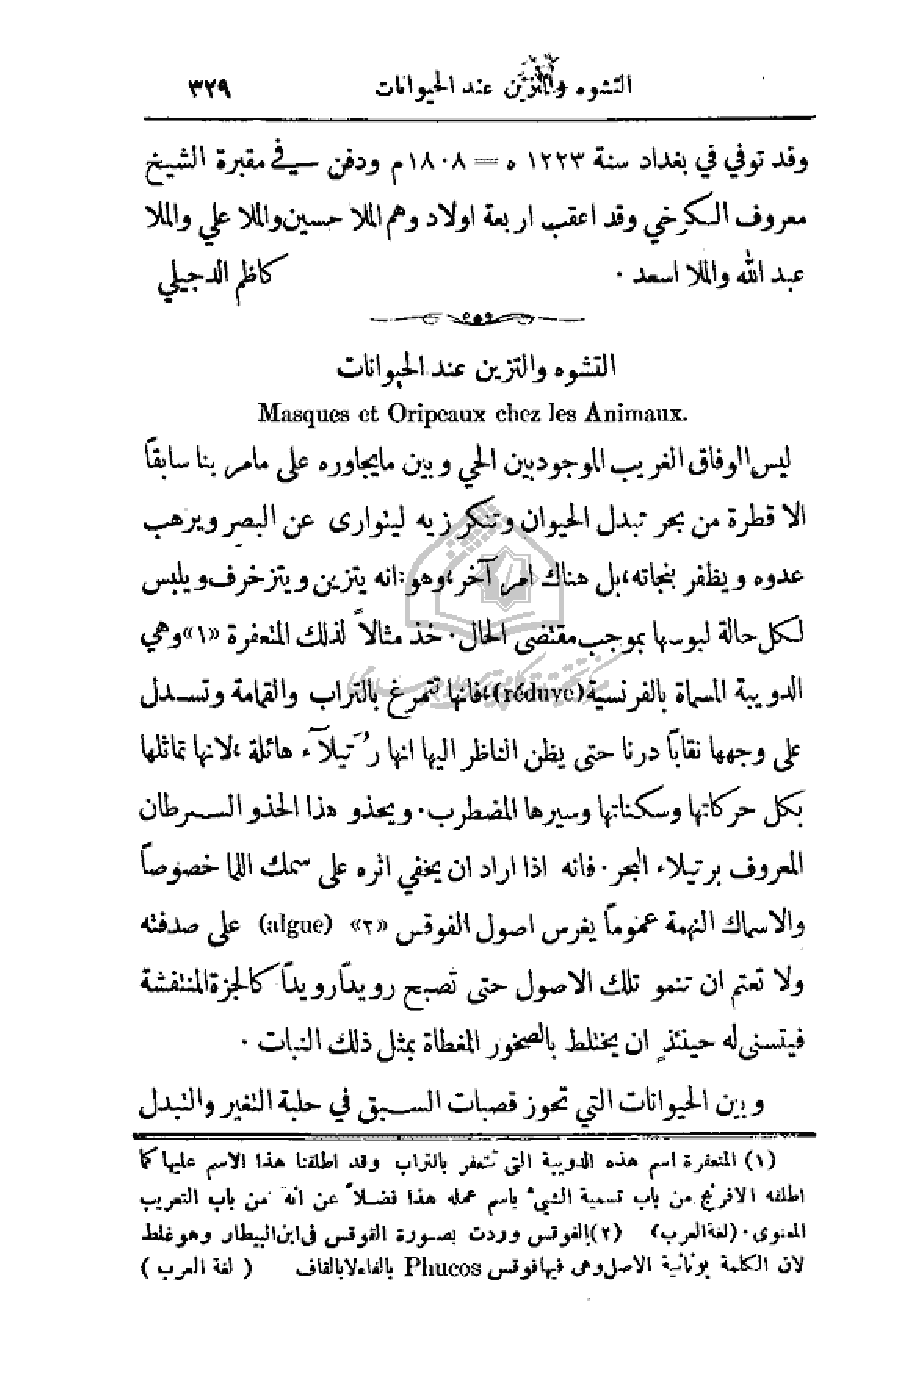 التشوه والتزين عند الحيوانات ٣٢٩
وقد توفي في بغداد سنة ١٢٢٣ ه = ١٨٠٨ م ودفن في مقبرة الشيخ
معروف الكرخي وقد اعقب اربعة اولاد وهم الملا حسين والملا علي والملا
عبد الله والملا اسعد . كاظم الدجيلي
التشوه والتزين عند الحيوانات
Masques et Oripeaux chez les Animaux.
ليس الوفاق الغريب الموجود بين الحي وبين ما يجاوره على ما مر بنا سابقاً
الا قطرة من بحر تبدل الحيوان وتنكر زيه ليتوارى عن البصر ويرهب
عدوه ويظفر بنجاته، بل هناك امر آخر، وهو: انه يتزين ويتزخرف ويلبس
لكل حالة لبوسها بموجب مقتضى الحال. خذ مثالاً لذلك المتعفرة «١» وهي
الدويبة المسماة بالفرنسية (réduve)، فانها تتمرغ بالتراب والقمامة وتسدل
على وجهها نقاباً درنا حتى يظن الناظر اليها انها رُتَيلآء هائلة، لانها تماثلها
بكل حركاتها وسكناتها وسيرها المضطرب. ويحذو هذا الحذو السرطان
المعروف برتيلاء البحر. فانه اذا اراد ان يخفي اثره على سمك اللما خصوصاً
والاسماك النهمة عموماً يغرس اصول الفوقس «٢» (algue) على صدفته
ولا تعتم ان تنمو تلك الاصول حتى تصبح رويداً رويداً كالجزة المنتفشة
فيتسنى له حينئذٍ ان يختلط بالصخور المغطاة بمثل ذلك النبات .
وبين الحيوانات التي تحوز قصبات السبق في حلبة التغير والتبدل
(١) المتعفرة اسم هذه الدويبة التي تتعفر بالتراب وقد اطلقنا هذا الاسم عليها كما
اطلقه الافرنج من باب تسمية الشيء باسم عمله هذا فضلاً عن انه من باب التعريب
المعنوي. (لغة العرب) (٢) الفوقس وردت بصورة القوقس في ابن البيطار وهو غلط
لان الكلمة يونانية الاصل وهي فيها فوقس Phucos بالفاء لا بالقاف ( لغة العرب )